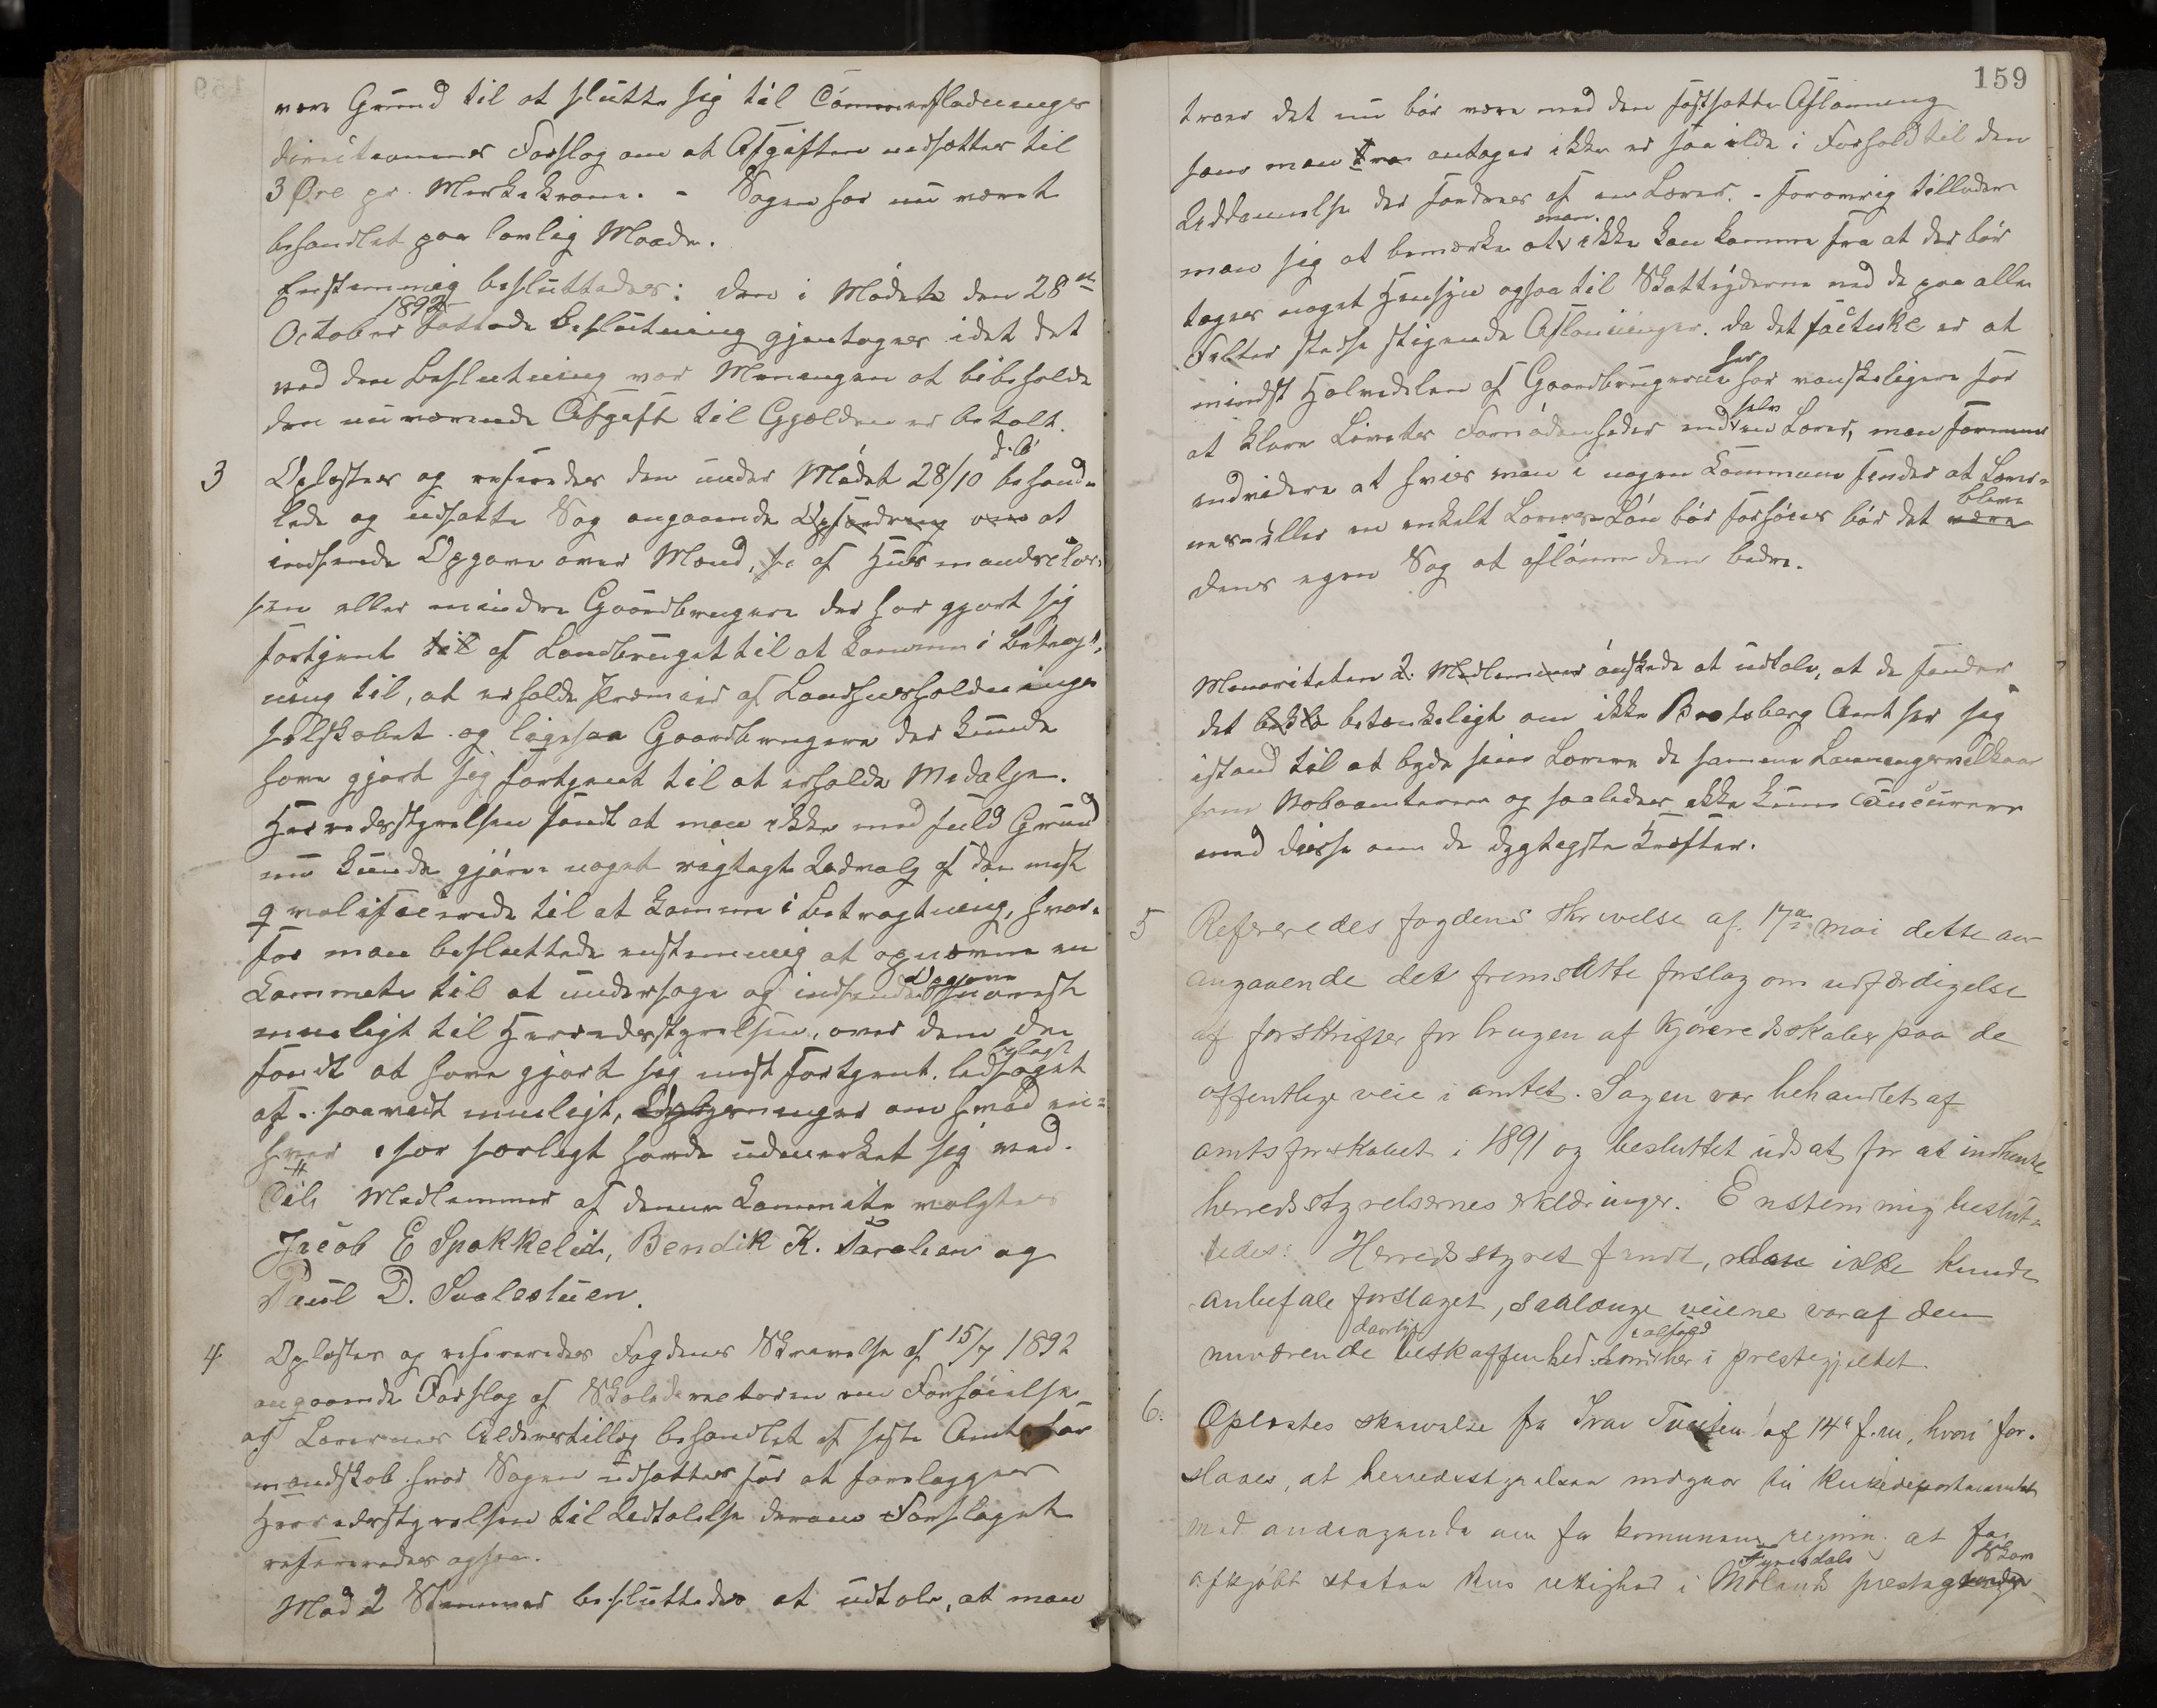 være Grund til at slutte sig til Cannaefladnings
direktionens Forslag om at Afgiften nedsættes til
3 Øre pr. Merkekrone. - Sagen har nu været
behandlet paa lovlig Maade.
Enstemmig besluttedes: den i Mødet den 28de
October 1892 fattede Beslutning gjentages idet det
ved den Beslutning var Meningen at bibeholde
den nuværende Afgift til Gjælden er betalt.
3 Oplæstes og refereredes den under Mødet 28/10 d. A. behand-
lede og udsatte Sag angaaende Opfordring om at
indsende Opgave over Mænd, af Husmandsklas-
sen eller mindre Gaardbrugere der har gjort sig
fortjent til af Landbruget til at komme i Betragt-
ning til, at erholde Præmier af Landhusholdnings
selskabet og ligesaa Gaardbrugere der kunde
have gjort sig fortjent til at erholde Medalje.
Herredsstyrelsen fandt at man ikke med fuld Grund
nu kunde gjøre noget rigtigt Udvalg af den mest
qvalificerede til at komme i Betragtning, hvor-
for man besluttede enstemmig at opnævne en
Kommite til at undersøge og indsende Opgave snarest
mueligt til Herredsstyrelsen, over dem den
fandt at have gjort sig mest fortjent, ledsaget
af saavidt mueligt, Oplysninger om hvad en-
hver især særligt havde udmerket sig ved.
Til Medlemmer af denne Kommite valgtes
Jacob E Spokkelid, Bendik K. Taraldsen og
Paul D. Svalestuen.
4 Oplæstes og refereredes Fogdens Skrivelse af 15/7 1892
angaaende Forslag af Skoledirectøren om Forhøielse
af Lærernes Alderstillæg behandlet af sidste Amtsfor
mandskab hvor Sagen udsattes for at forelægges
Herredsstyrelsen til Udtalelse derom Forslaget
refereredes ogsaa.
Mod 2 Stemmer besluttedes at udtale, at man
159
troer det nu bør være med den fastsatte Aflønning
som man antager ikke er saa ilde i Forhold til den
Uddannelse der fordres af en Lærer. - forøvrig tillader
man sig at bemærke at man ikke kan komme fra at der bør
tages noget Hensyn ogsaa til Skatteyderne ved de paa alle
Felter stedse stigende Aflønninger. da det factiske er at
mindst Halvdelen af Gaardbrugerne her har vanskeligere for
at klare Livets Fornødenheder end selv en Lærer, man formener
endvidere at hvis man i nogen Kommune finder at Lærer-
nes eller en enkelt Lærers Løn bør forhøies bør det blive
dens egen Sag at aflønne dem bedre.
Menoriteten 2 Medlemmer ønskede at udtale, at de finder
det betænkeligt om ikke Bratsberg Amt ser sig
istand til at byde sine Lærere de samme Lønningsvilkaar
som Naboamterne og saaledes ikke kunne concurrere
med disse om de dygtigste Kræfter.
5 Refereredes fogdens skrivelse af 17de mai dette aar
angaaende det fremsatte forslag om udfærdigelse
af forskrifter for brugen af kjøreredskaber paa de
offentlige veie i amtet. Sagen var behandlet af
amtsforskabet i 1891 og besluttet udsat for at indhente
herredsstyrelsernes erklæringer. Enstemmig beslut-
tedes: Herredsstyret fandt, man ikke kunde
anbefale forslaget, saalænge veiene var af den
nuværende daarlige beskaffenhed ialfald her i prestegjeldet.
6. Oplæstes skrivelse fra Ivar Tveiten af 14de f.m, hvori for-
slaaes, at herredsstyrelsen indgaar til Kirkedepartementet
med andragende om for kommunens regning at faa
afkjøbt staten hus rettighed i Fyresdals Molands prestegjeld